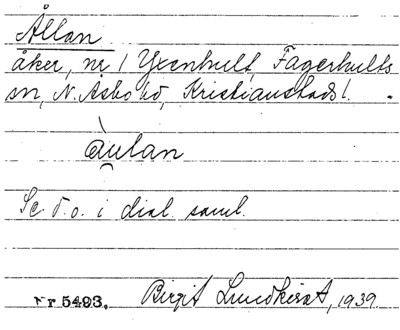 Ållan
åker, nr 1 Yxenhult, Fagerhults
sn, N. Åsbo hd, Kristianstads l.
àu̯lan
Se d. o. i dial. saml.
Nr 5493. Birgit Lundkvist, 1939.